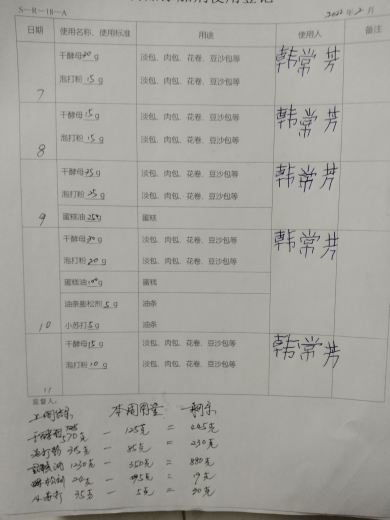 S-R-18-A
2022年2月
日期 使用名称、使用标准 用途 使用人 备注
干酵母20g 淡包、肉包、花卷、豆沙包等 韩常芳
泡打粉15g 淡包、肉包、花卷、豆沙包等
7
干酵母15g 淡包、肉包、花卷、豆沙包等 韩常芳
泡打粉15g 淡包、肉包、花卷、豆沙包等
8
干酵母35g 淡包、肉包、花卷、豆沙包等 韩常芳
泡打粉25g 淡包、肉包、花卷、豆沙包等
9 蛋糕油250g 蛋糕
干酵母30g 淡包、肉包、花卷、豆沙包等 韩常芳
泡打粉20g 淡包、肉包、花卷、豆沙包等
蛋糕油100g 蛋糕
油条膨松剂5g 油条
10 小苏打5g 油条
干酵母15g 淡包、肉包、花卷、豆沙包等 韩常芳
泡打粉10g 淡包、肉包、花卷、豆沙包等
11
监督人:
本周用量
570克 - 125克 = 445克
泡打粉 315克 - 85克 = 230克
1230克 - 350克 = 880克
24克 - 5克 = 19克
35克 - 5克 = 30克